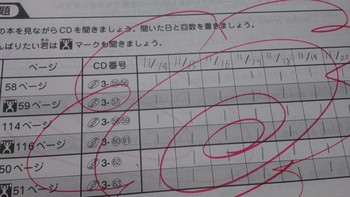 題
の本を見ながらCDを聞きましょう。聞いた日と回数を書きましょう。
んばりたい君は マークも聞きましょう。
ページ CD番号 11/14 11/15 11/16 11/17 11/18 11/19 11/20
58ページ 3-
59ページ 3-57
114ページ 3-58 59
116ページ 3-60 61
50ページ 3-62
51ページ 3-63